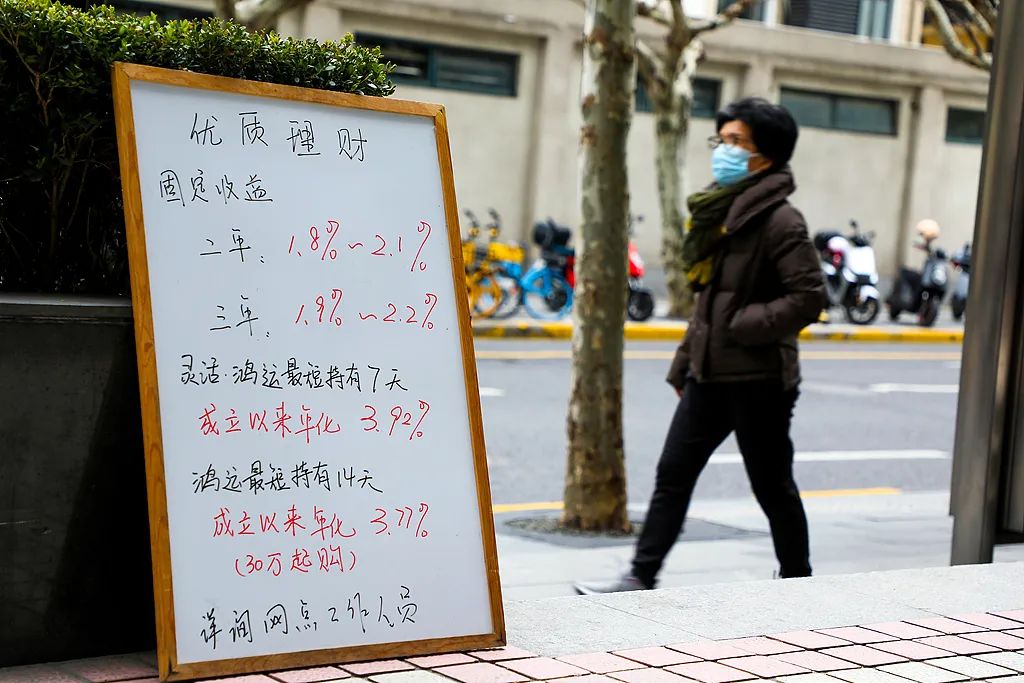 优质理财
固定收益
二年: 1.8%~2.1%
三年: 1.9%~2.2%
灵活·鸿运最短持有7天
成立以来年化 3.92%
鸿运最短持有14天
成立以来年化 3.77%
(30万起购)
详询网点工作人员